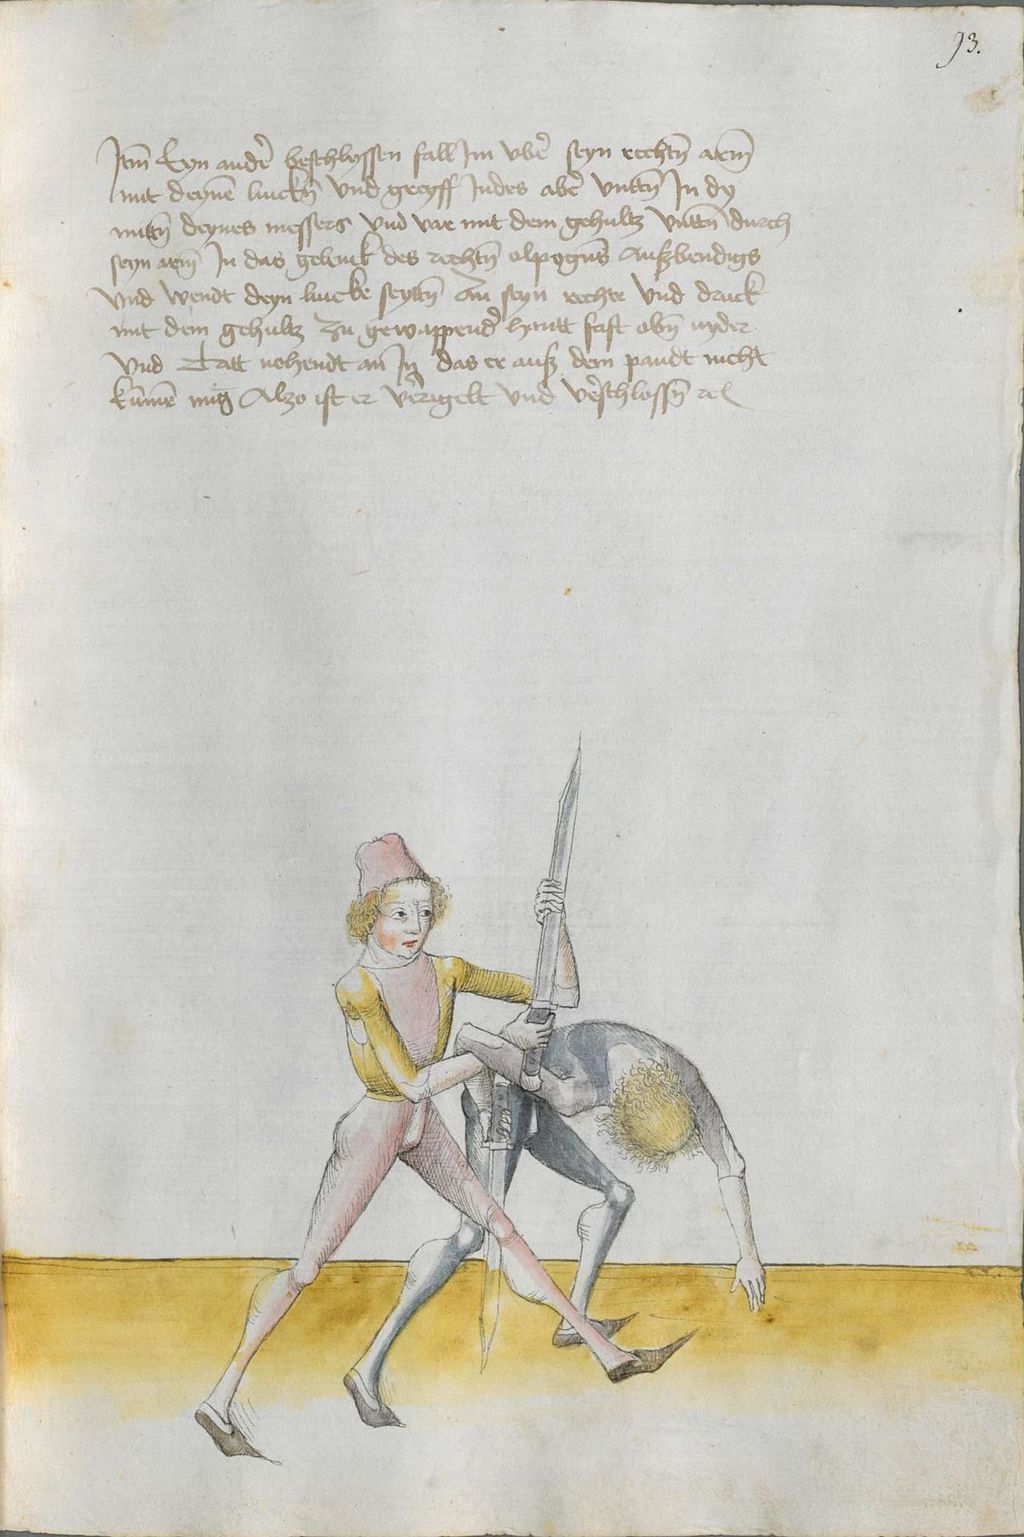 93.
Jtm̄ Eyn ander̄ beschlyssen fall Jm vber̄ seyn rechtn̄ arm̄
mit deyne̅ linckn̄ vnd greyff Jndes aber̄ vnttn̄ Jn dy
mittn̄ deynes messers vnd var mit dem gehultz vnttn̄ durch
seyn arm̄ Jn das gelenk des rechtn̄ olpogens Außbendigs
vnd wendt deyn lincke seyttn̄ An seyn rechte vnd druck
mit dem gehultz zu gewappender̄ hantt fast obn̄ nyder
vnd Tritt nohendt an Jn das er auß dem pandt nicht
kum̄e mag Alzo ist er verrigelt vnd verschlossn̄